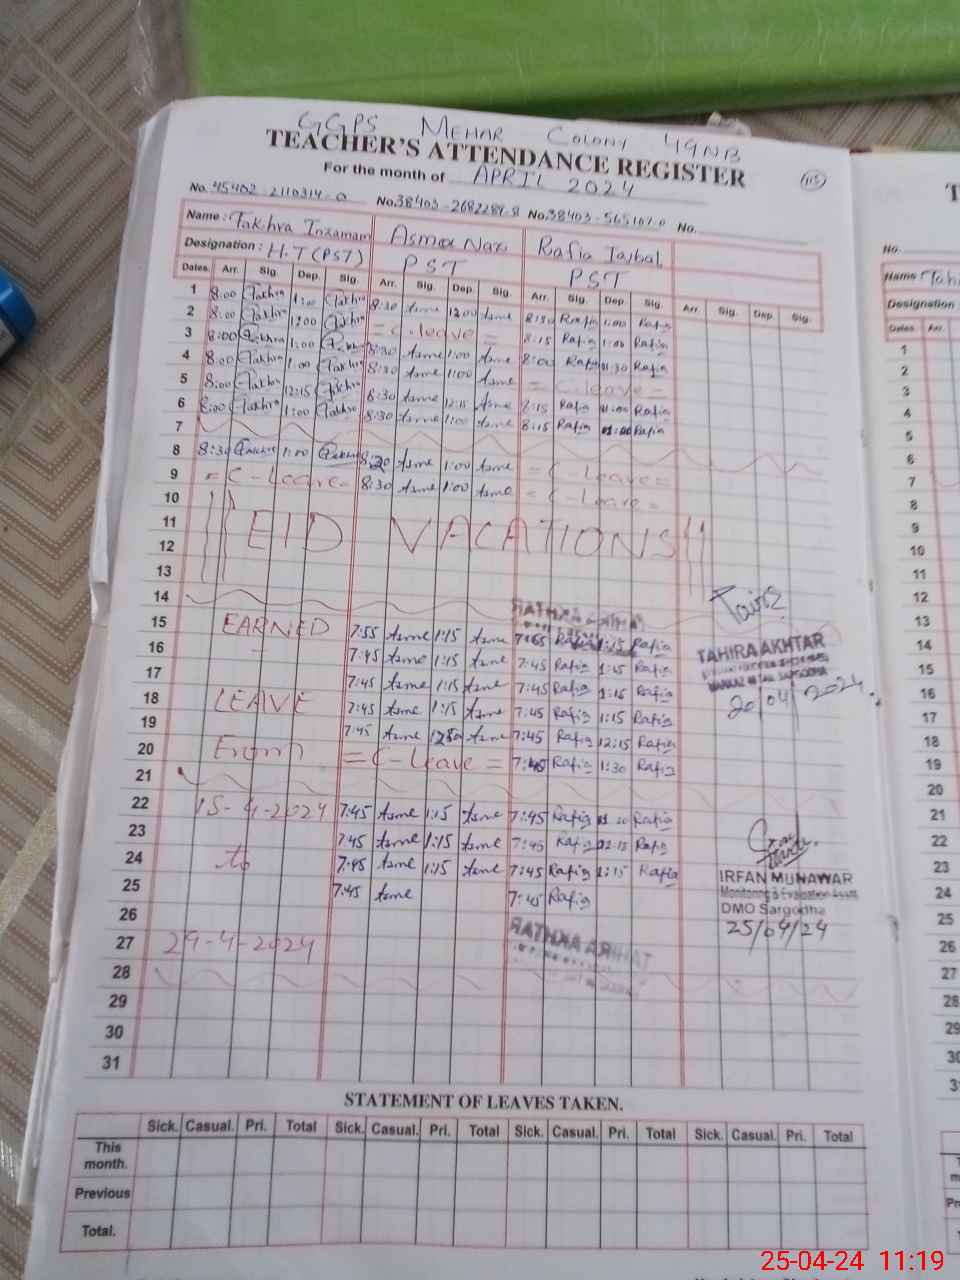 GGPS MEHAR COLONY 49NB
TEACHER'S ATTENDANCE REGISTER
For the month of APRIL 2024
115
No. 45402-2110314-0 No. 38403-2682289-8 No. 38403-565107-0 No.
Name: Fakhra Inzamam Asma Naz Rafia Iqbal
Designation: H.T (PST) PST PST
Dates. Arr. Sig. Dep. Sig. Arr. Sig. Dep. Sig. Arr. Sig. Dep. Sig. Arr. Sig. Dep. Sig.
1 8:00 Fakhra 1:00 Fakhra 8:30 Asma 12:00 Asma 8:30 Rafia 1:00 Rafia
2 8:00 Fakhra 1:00 Fakhra = C.leave = 8:15 Rafia 1:00 Rafia
3 8:00 Fakhra 1:00 Fakhra 8:30 Asma 1:00 Asma 8:00 Rafia 11:30 Rafia
4 8:00 Fakhra 1:00 Fakhra 8:30 Asma 1:00 Asma = C.leave =
5 8:00 Fakhra 12:15 Fakhra 8:30 Asma 12:15 Asma 8:15 Rafia 11:00 Rafia
6 8:00 Fakhra 1:00 Fakhra 8:30 Asma 1:00 Asma 8:15 Rafia Rafia
7
8 8:30 Fakhra 1:00 Fakhra 8:20 Asma 1:00 Asma = C-Leave =
9 = C-Leave = 8:30 Asma 1:00 Asma = C-Leave =
10
11 EID VACATIONS!!
12
13
14
15 EARNED 7:55 Asma 1:15 Asma Rafia 1:15 Rafia
16 7:45 Asma 1:15 Asma 7:45 Rafia 1:15 Rafia
17 7:45 Asma 1:15 Asma 7:45 Rafia 1:15 Rafia
18 LEAVE 7:45 Asma 1:15 Asma 7:45 Rafia 1:15 Rafia
19 7:45 Asma Asma 7:45 Rafia 12:15 Rafia
20 From = C-Leave = Rafia 1:30 Rafia
21
22 15-4-2024 7:45 Asma 1:15 Asma 7:45 Rafia Rafia
23 7:45 Asma 1:15 Asma 7:45 Rafia Rafia
24 to 7:45 Asma 1:15 Asma 7:45 Rafia 1:15 Rafia
25 7:45 Asma 7:45 Rafia
26
27 29-4-2024
28
29
30
31
TAHIRA AKHTAR
20/04/2024
IRFAN MUNAWAR
Monitoring & Evaluation Assistt
DMO Sargodha
25/04/24
STATEMENT OF LEAVES TAKEN.
Sick. Casual. Pri. Total Sick. Casual. Pri. Total Sick. Casual. Pri. Total Sick. Casual. Pri. Total
This month.
Previous
Total.
No.
Name
Designation
Dates. Arr.
1
2
3
4
5
6
7
8
9
10
11
12
13
14
15
16
17
18
19
20
21
22
23
24
25
26
27
28
29
30
25-04-24 11:19